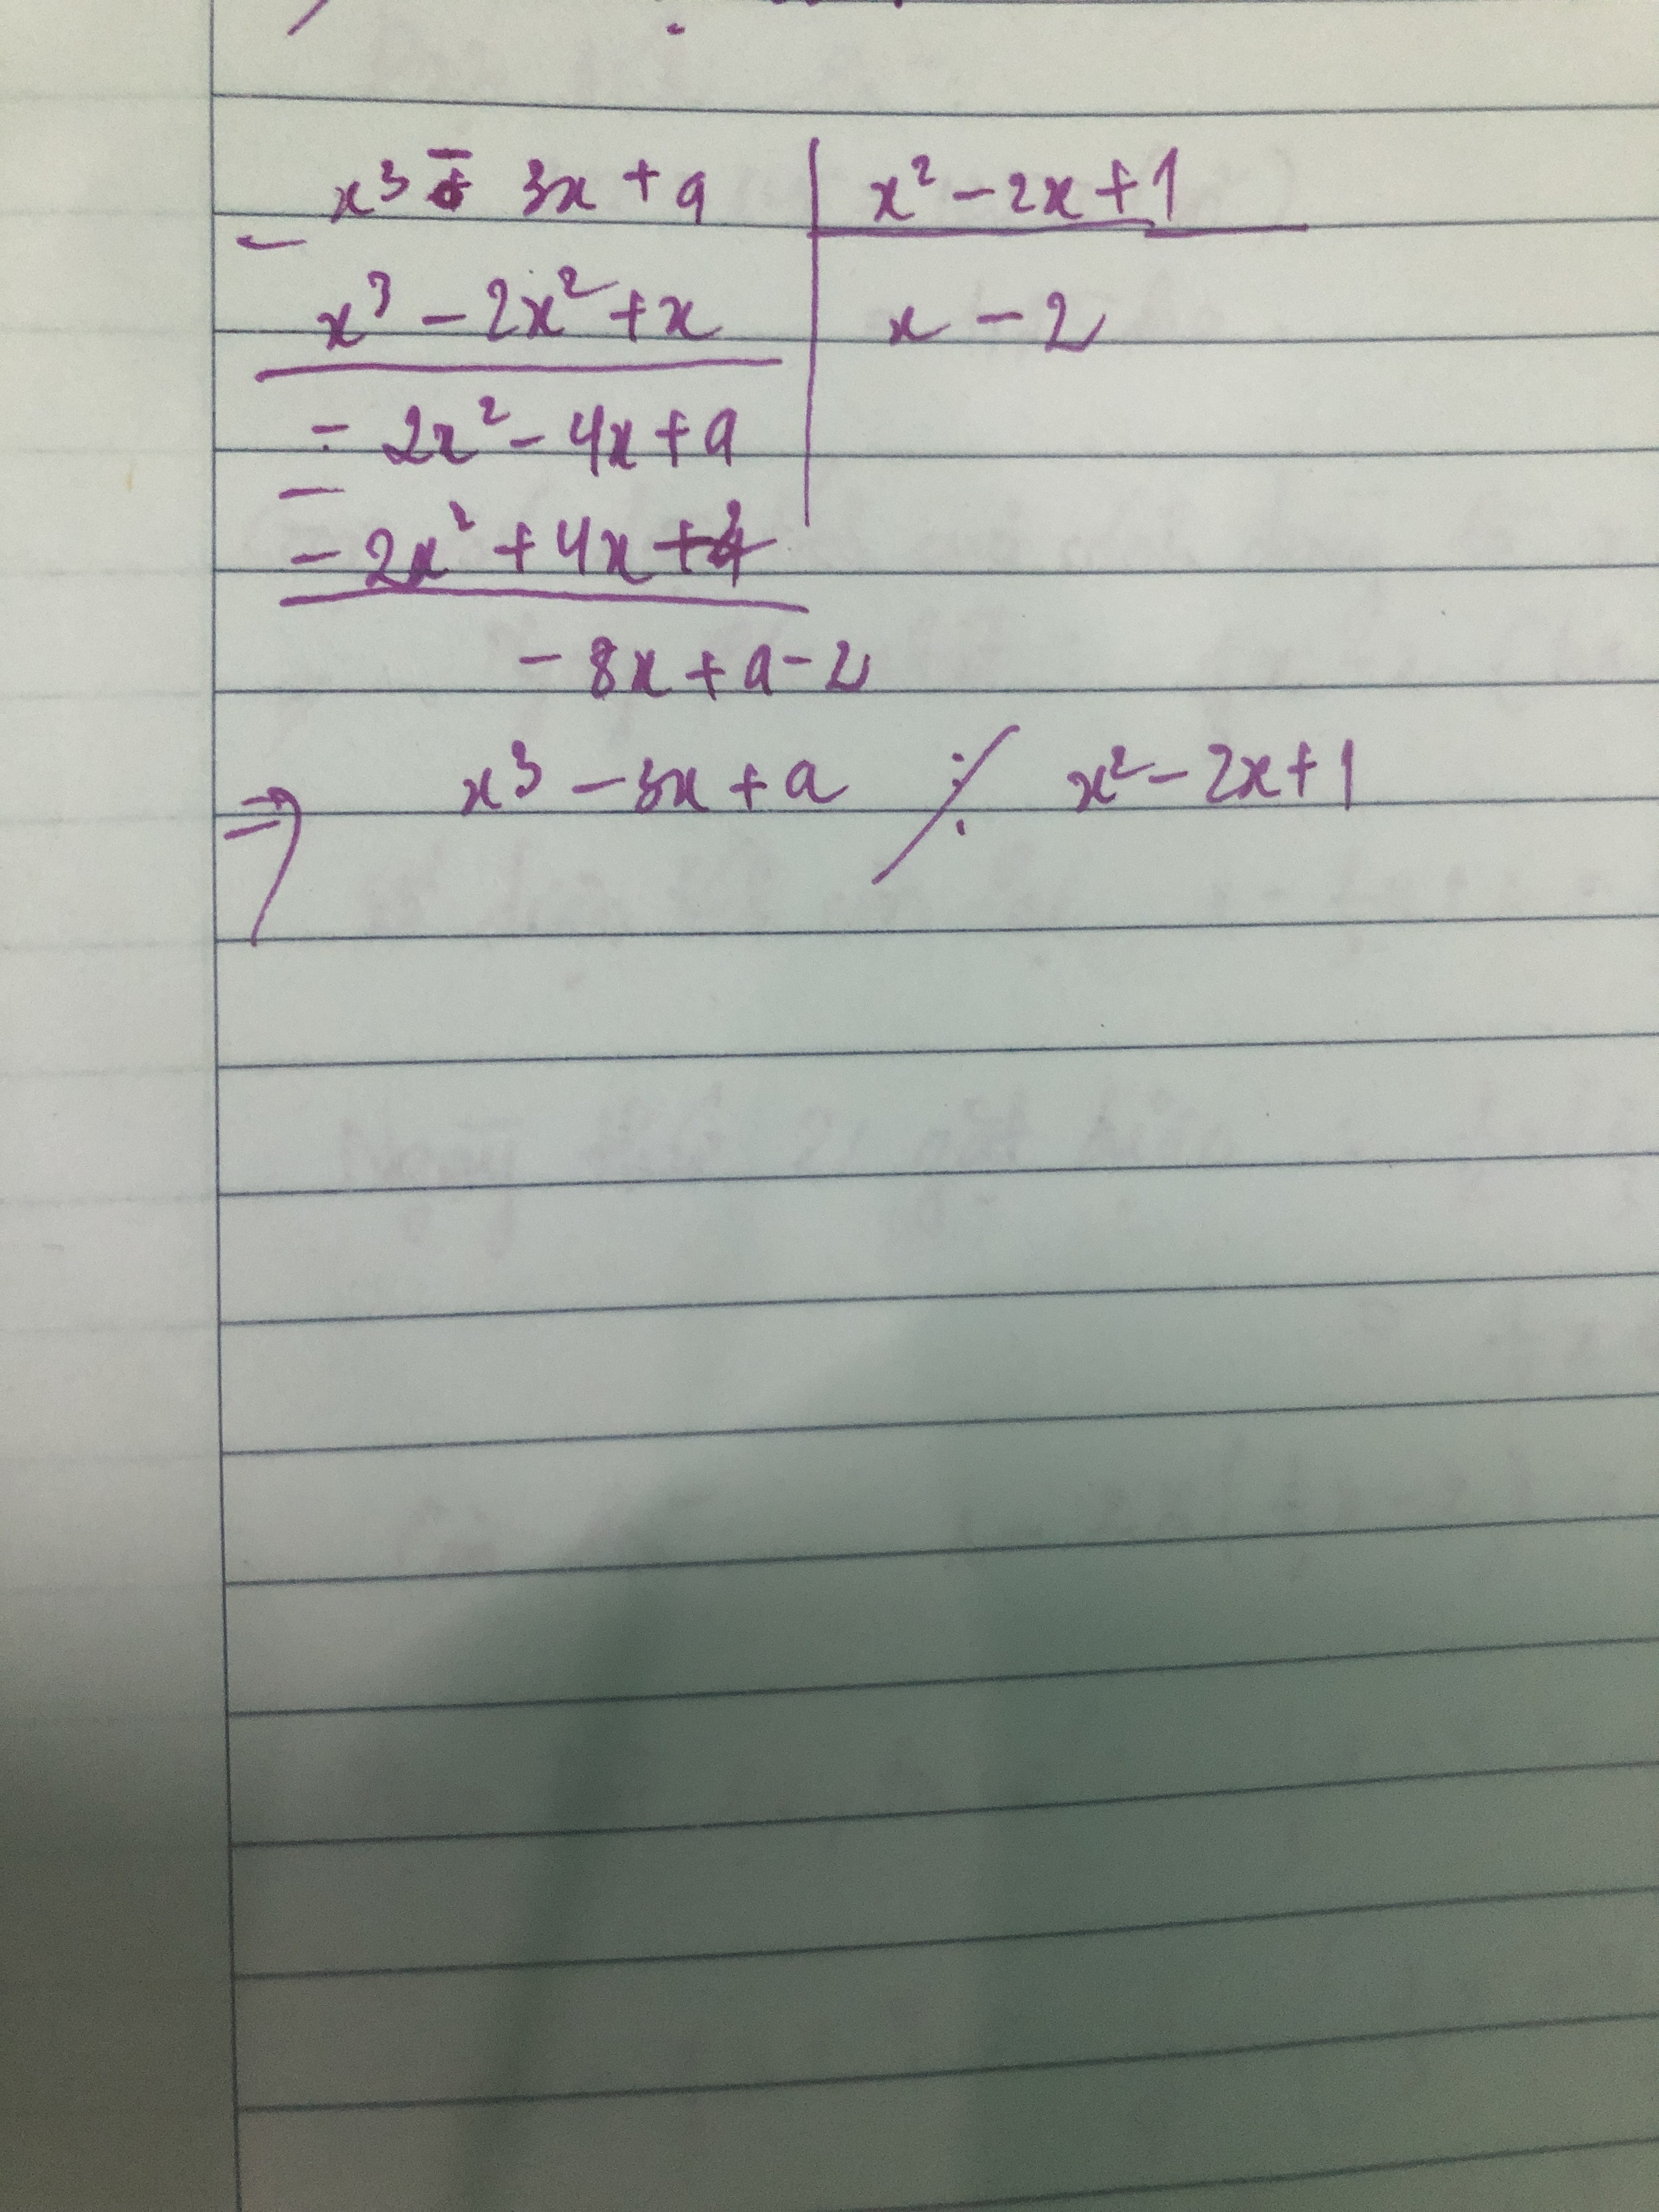 x³ - 3x + a | x² - 2x + 1
-
x³ - 2x² + x | x - 2
- 2x² - 4x + a
-
- 2x² + 4x + 4
- 8x + a - 2
⇒ x³ - 3x + a ⋮̸ x² - 2x + 1